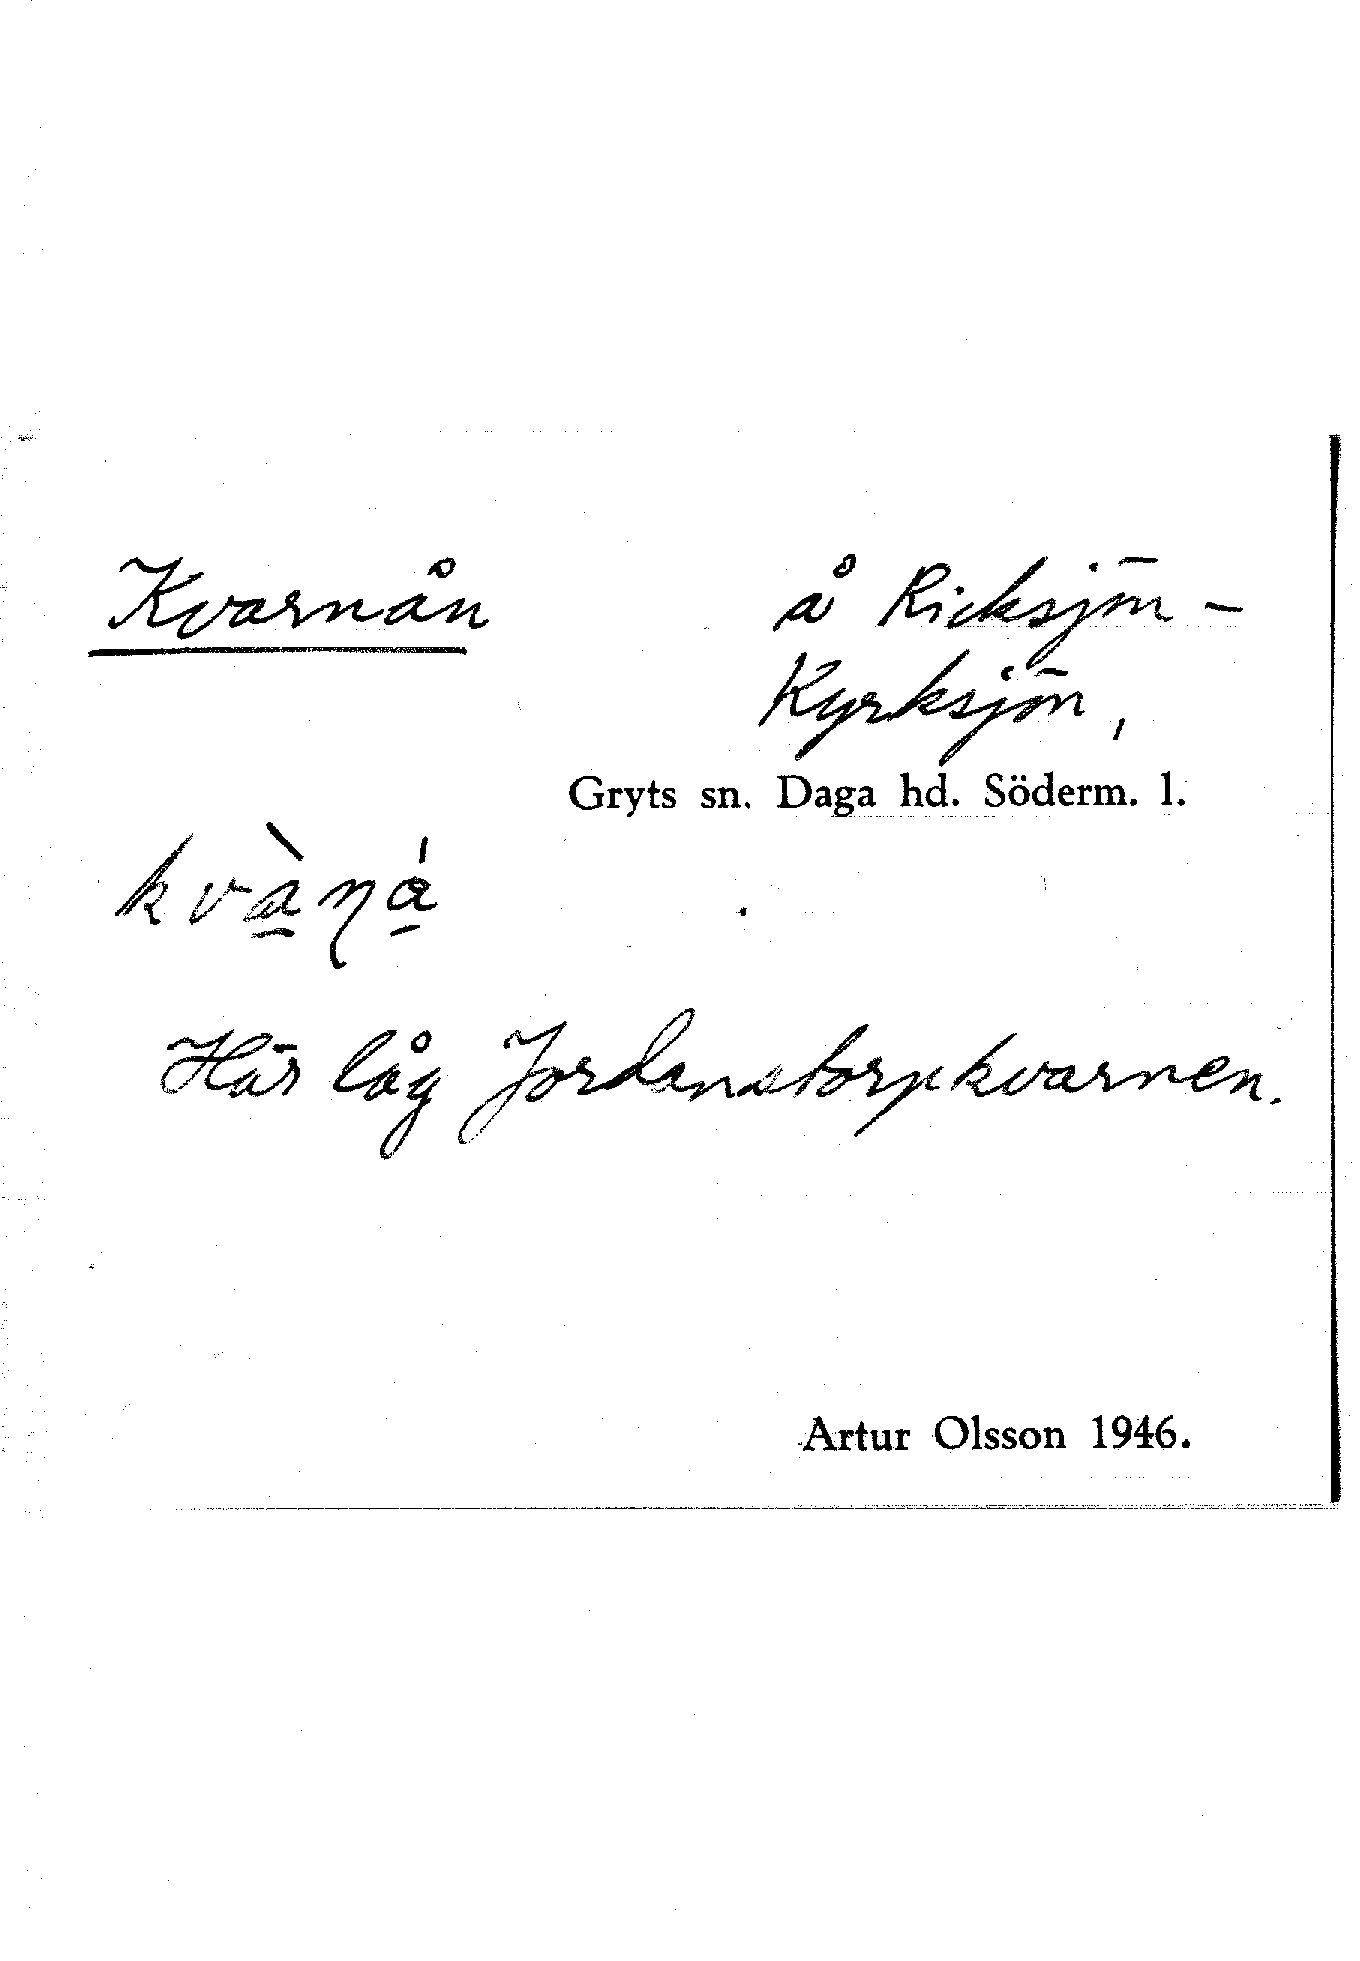 Kvarnån å Ricksjön -
Kyrksjön,
Gryts sn. Daga hd. Söderm. l.
Här låg Jordanstorpkvarnen.
Artur Olsson 1946.